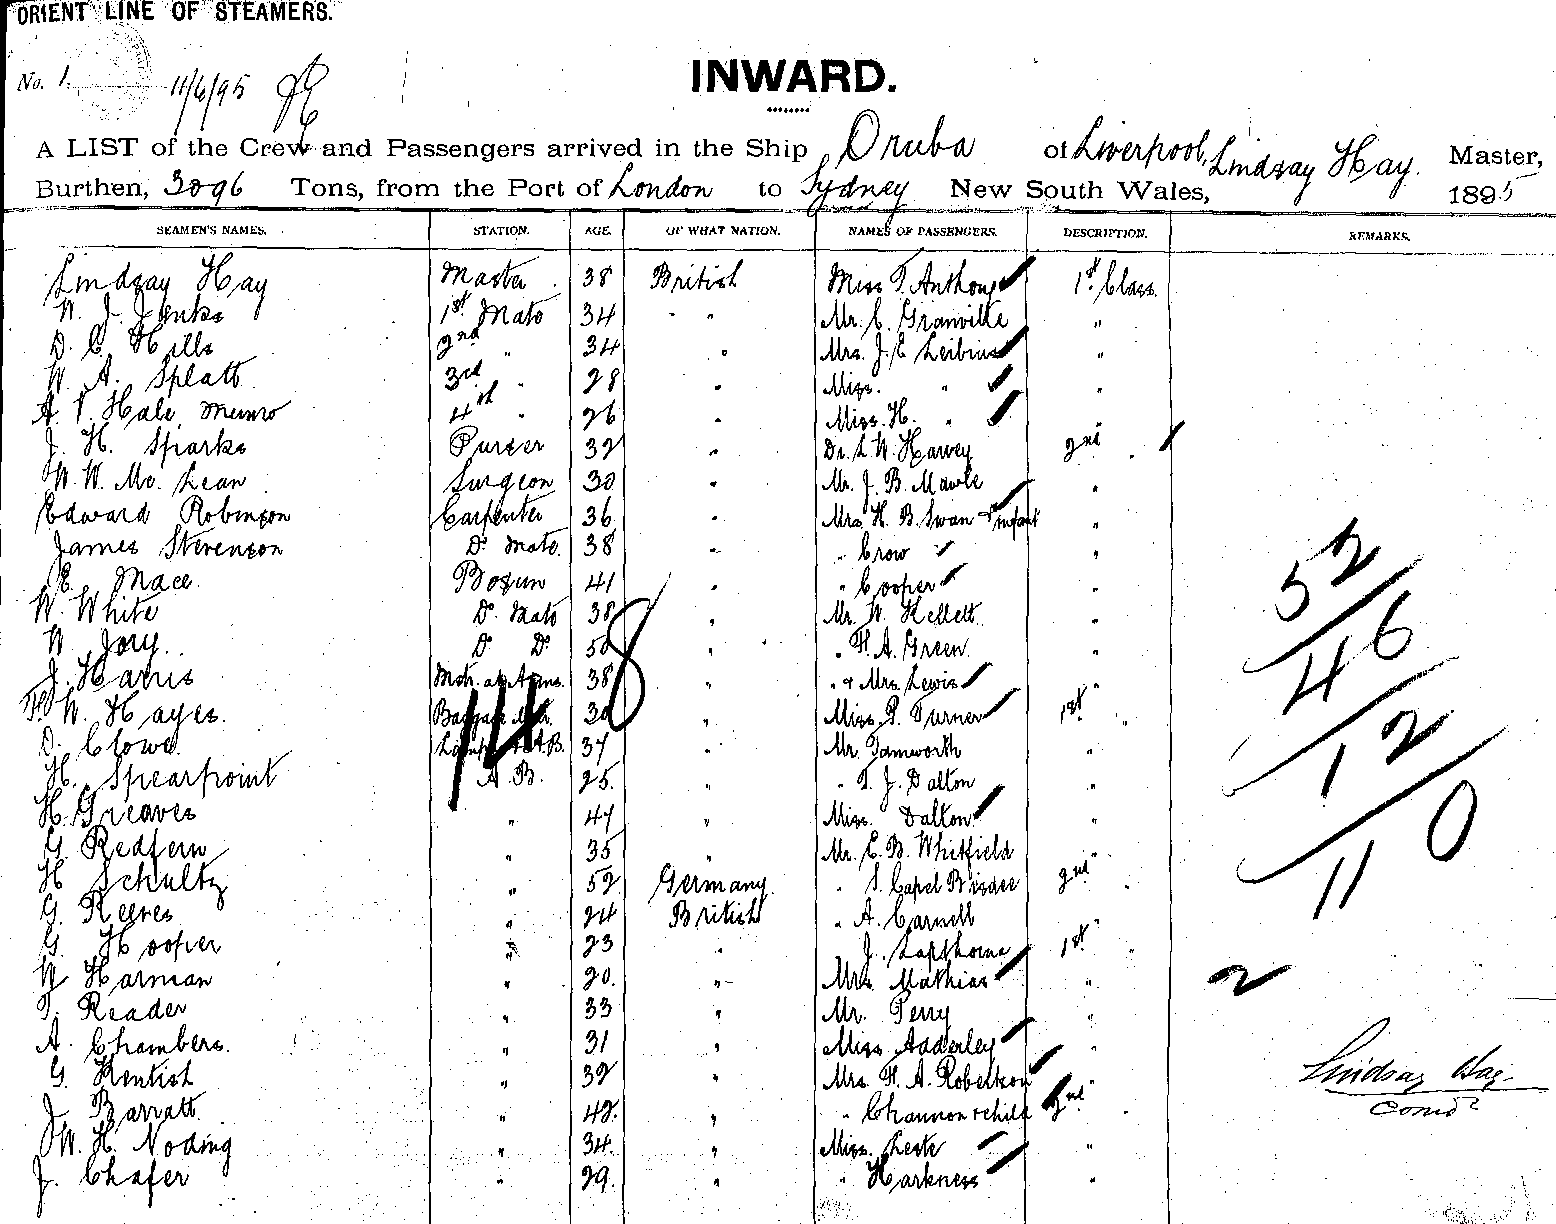 ORIENT LINE OF STEAMERS.
No. 1. 11/6/95
INWARD.
A LIST of the Crew and Passengers arrived in the Ship Oruba of Liverpool, Lindsay Hay. Master,
Burthen, 3096 Tons, from the Port of London to Sydney New South Wales, 1895
SEAMEN'S NAMES. STATION. AGE. OF WHAT NATION. NAMES OF PASSENGERS. DESCRIPTION. REMARKS.
Lindsay Hay Master 38 British Miss T. Anthony 1st Class.
W. J. Jenks 1st Mate 34 " Mr. C. Granville "
D. C. Hills 2nd " 34 " Mrs. J. E. "
W. A. Splatt 3rd " 28 " Miss. " "
A. V. Hale Munro 4th " 26 " Miss. H. " "
J. H. Sparks Purser 32 " Dr. L. W. Harvey 2nd "
W. W. Mc. Lean Surgeon 30 " Mr. J. B. Mawle "
Edward Robinson Carpenter 36 " Mrs. H. B. Swan & infant "
James Stevenson Do. Mate. 38 " " Crow "
E. Mace Bosun 41 " " Cooper "
W. White Do. Mate 38 " Mr. W. Kellett "
W. Jory. Do. Do. 50 " " F. A. Green "
J. Harris Mstr. at Arms. 38 " " & Mrs. Lewis "
W. Hayes. Baggage 30 " Miss. P. Turner 1st "
D. Clowe. A.B. 37 " Mr. Tamworth "
H. Spearpoint A.B. 25. " " T. J. Dalton "
H. Greaves " 47 " Miss. Dalton "
G. Redfern " 35 " Mr. E. B. Whitfield "
H. Schultz " 52 Germany. " S. Capel Brisdee 2nd "
G. Reeves " 24 British " A. Carnell "
G. Hooper " 23 " J. Lapthorne 1st "
W. Harman " 20. " Mrs. Mathias "
T. Reader " 33 " Mr. Perry "
A. Chambers. " 31 " Miss Adderley "
G. Kentish " 32 " Mrs. F. A. Robertson "
J. Barratt " 42. " " Channon & child 2nd "
W. H. Noding " 34. " Miss. Leste "
J. Chafer " 29. " " Harkness "
14
8
52
46
12
11 0
2
Lindsay Hay.
Comdr